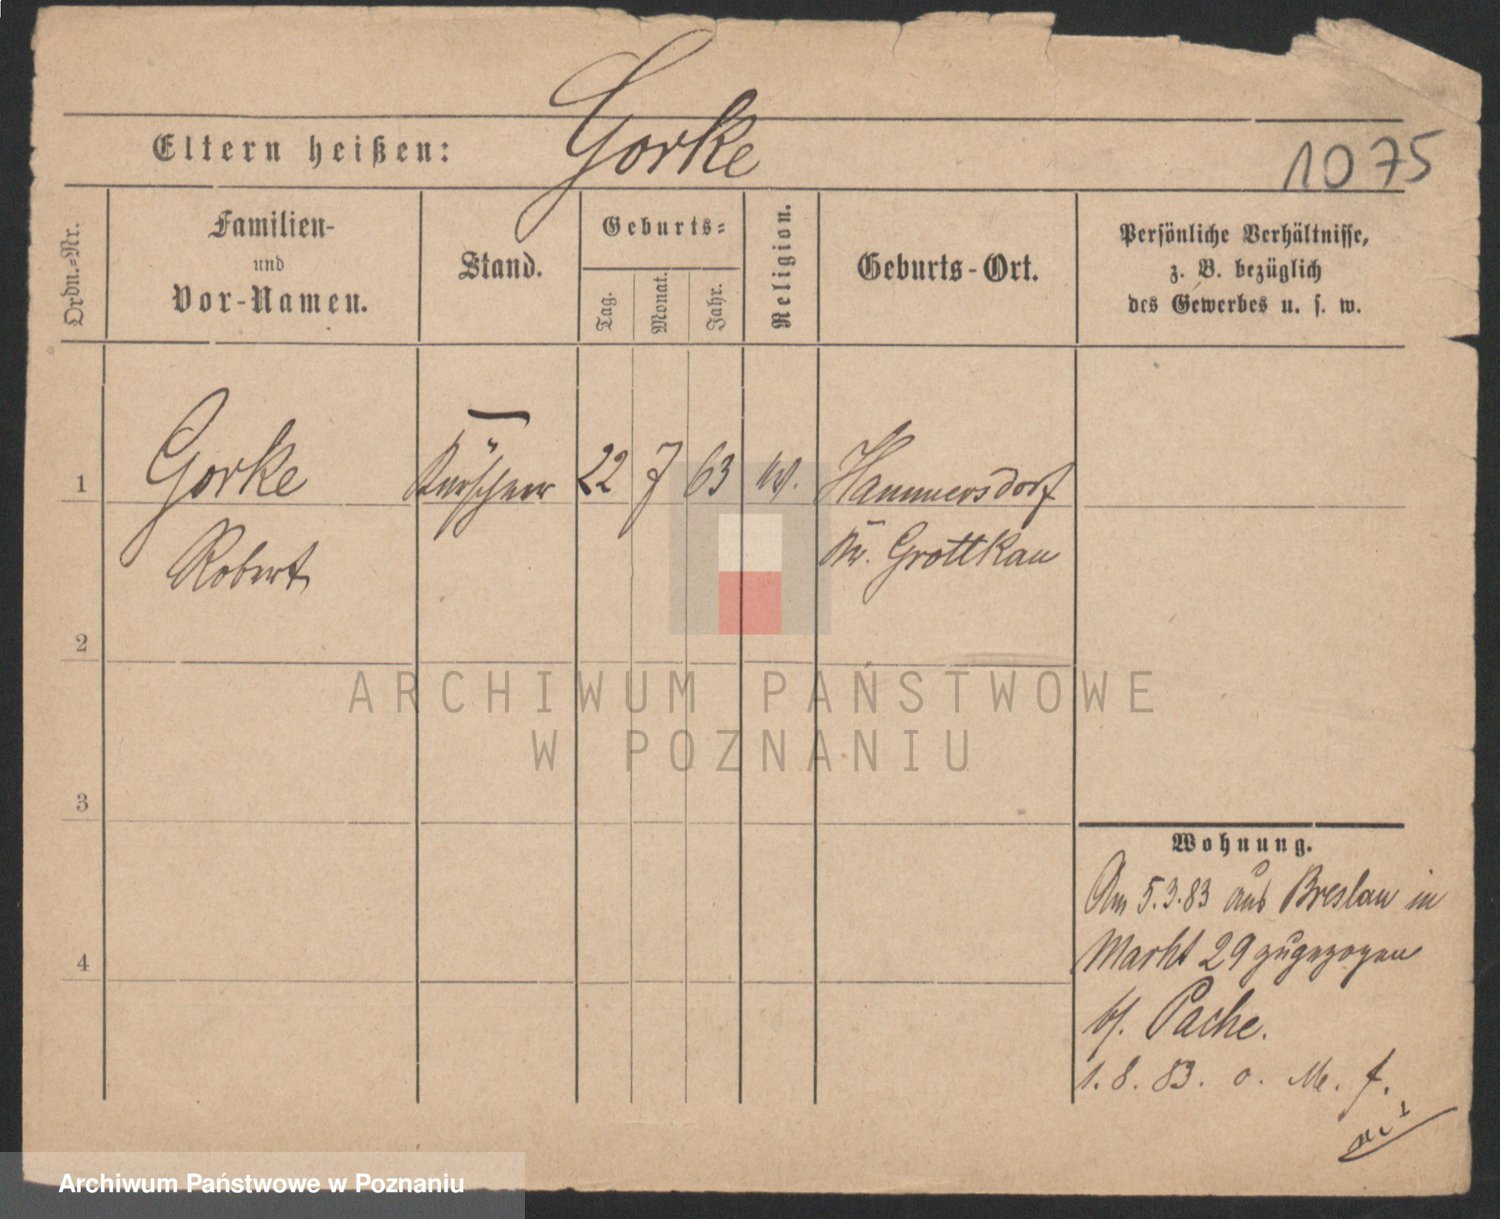 Gorke
Eltern heißen:
1075
Ordn.-Nr.
Familien-
und
Vor-Namen.
Stand.
Geburts-
Tag.
Monat.
Jahr.
Religion.
Geburts-Ort.
Persönliche Verhältnisse,
z. B. bezüglich
des Gewerbes u. s. w.
1
Gorke
Robert
Kürschner
22 7 63
Hammersdorf
Kr. Grottkau
2
3
4
Wohnung.
Am 5.3.83 aus Breslau in
Markt 29 zugezogen
b/. Pache.
1. 8. 83. o. M. f.
ARCHIWUM PAŃSTWOWE
W POZNANIU
Archiwum Państwowe w Poznaniu